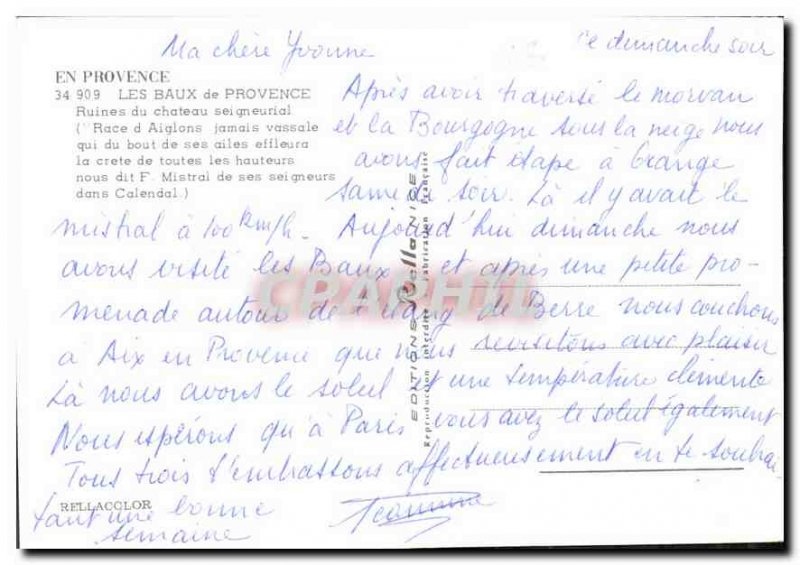 Ma chère Yvonne
ce dimanche soir
EN PROVENCE
34 909 LES BAUX de PROVENCE
Ruines du chateau seigneurial
(" Race d Aiglons jamais vassale
qui du bout de ses ailes effleura
la crete de toutes les hauteurs
nous dit F. Mistral de ses seigneurs
dans Calendal.)
Après avoir traversé le morvan
et la Bourgogne sous la neige nous
avons fait étape à Orange
samedi soir. Là il y avait le
mistral à 100 km/h. Aujourd'hui dimanche nous
avons visité les Baux et après une petite pro-
menade autour de l'étang de Berre nous couchons
à Aix en Provence que nous revisitons avec plaisir
Là nous avons le soleil et une température clémente
Nous espérons qu'à Paris vous avez le soleil également
Tous trois t'embrassons affectueusement en te souhai-
tant une bonne
semaine
Jeannine
RELLACOLOR
EDITIONS Rella NICE
Reproduction interdite Fabrication Française
CPAPHIL